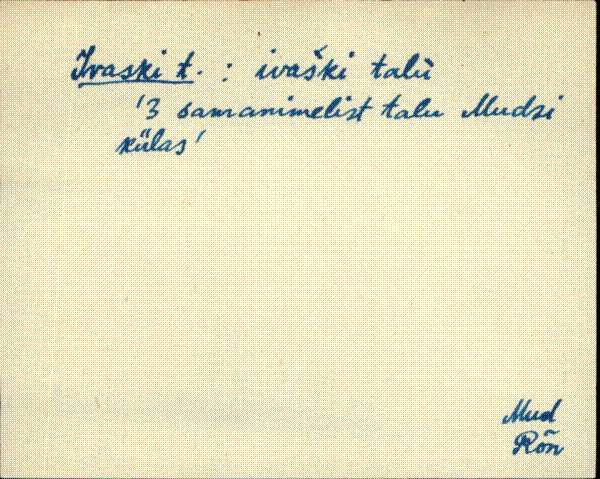 Ivaski t. : ivaški talu̇̀
'3 samanimelist talu Mudsi
külas'
Mud
Rõn